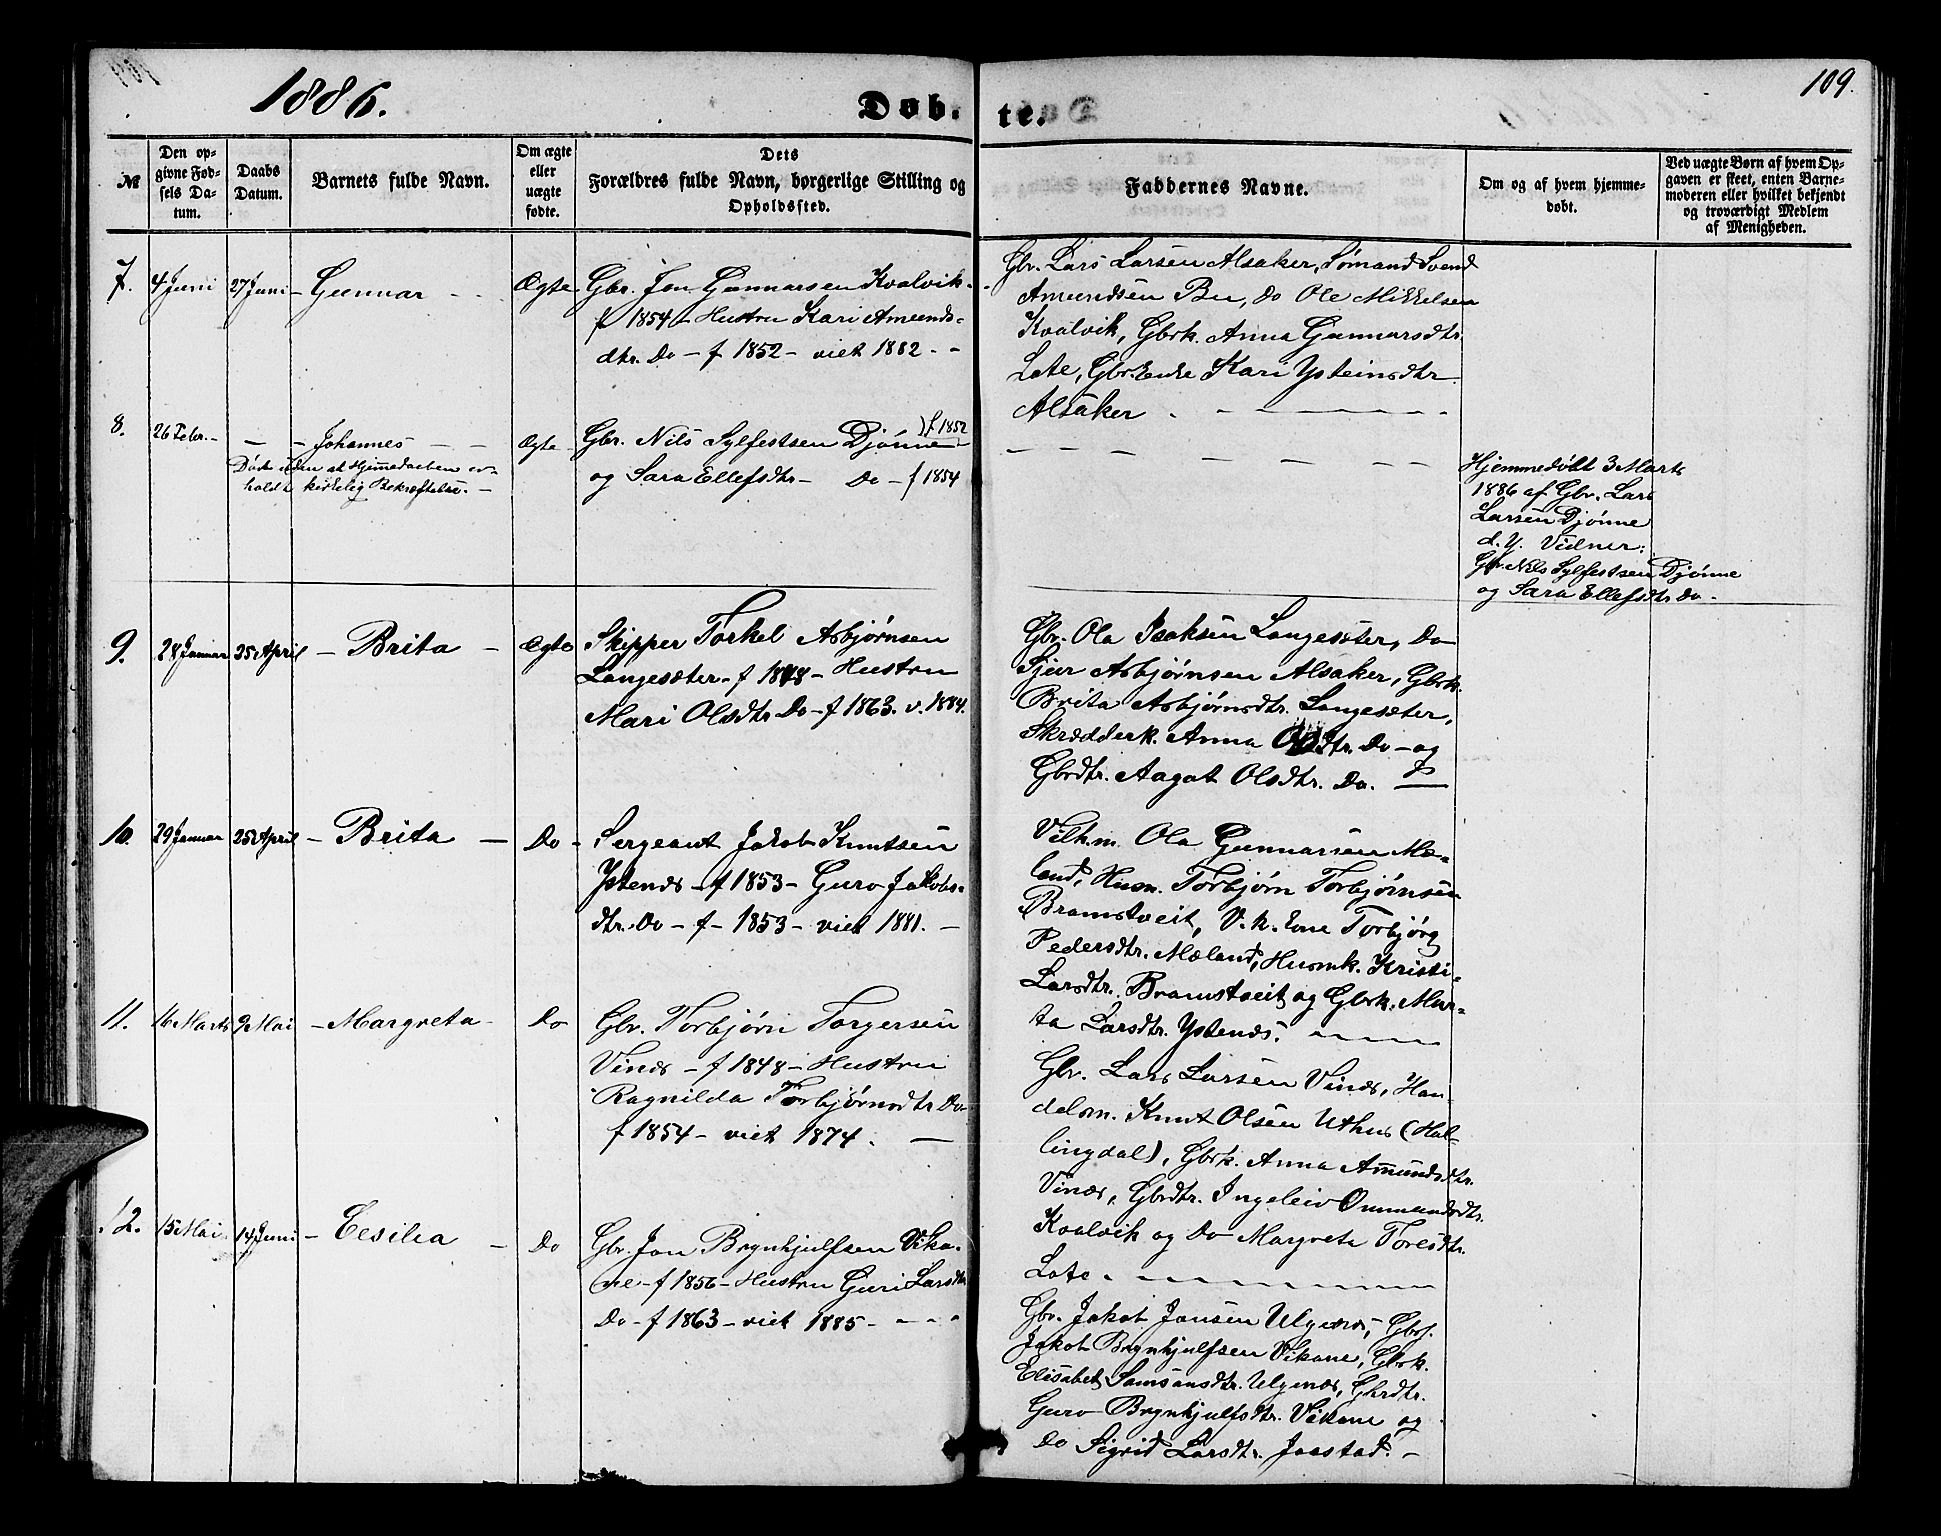 1886.
Døb.
te.
109.
№
Den op-
givne Fød-
sels Da-
tum.
Daabs
Datum.
Barnets fulde Navn.
Om ægte
eller
uægte
fødte.
Dets
Forældres fulde Navn, borgerlige Stilling og
Opholdssted.
Faddernes Navne.
Om og af hvem hjemme-
døbt.
Ved uægte Børn af hvem Op-
gaven er skeet, enten Barne-
moderen eller hvilket bekjendt
og troværdigt Medlem
af Menigheden.
7. 4 Juni 27 Juni - Gunnar - - Ægte
Gbr. Jon Gunnarsen Kvalvik -
f 1854 - Hustru Kari Amunds-
dtr. Do - f 1852 - viet 1882 - -
Gbr. Lars Larsen Alsaker, Sømand Svend
Amundsen Bu, Do Ole Mikkelsen
Kvalvik, Gbrk. Anna Gunnarsdtr.
Lote, Gbr. Enke Kari Ysteinsdtr
Alsaker
8. 26 Febr. - - - Johannes - - Ægte
Døde uden at Hjemmedaaben er-
holdt kirkelig Bekræftelse. -
Gbr. Nils Sylfestsen Djønne f. 1852
og Sara Ellefsdtr - Do - f 1854
Hjemmedøbt 3 Marts
1886 af Gbr. Lars
Larsen Djønne
d. Y. Vidner:
Gbr. Nils Sylfestsen Djønne
og Sara Ellefsdtr Do -
9. 28 Januar 25 April - Brita - Ægte
Skipper Torkel Asbjørnsen
Langesæter - f 1848 - Hustru
Mari Olsdtr Do - f 1863. v. 1884.
Gbr. Ola Isaksen Langesæter, Do
Sjur Asbjørnsen Alsaker, Gbrk.
Brita Asbjørnsdtr. Langesæter,
Skrædderk. Anna Olsdtr. Do - og
Gbrdtr. Aagot Olsdtr. Do.
10. 29 Januar 25 April - Brita - Do -
Sergeant Jakob Knutsen
Ystenæs - f 1853 - Guro Jakobs-
dtr. Do - f - 1853 - viet 1881. -
Vilh.m. Ola Gunnarsen Mæ-
land, Husm. Torbjørn Torbjørnsen
Bramstveit, V.k. Ene Torbjørg
Pedersdtr. Mæland, Husmk. Kristi-
Larsdtr. Bramstveit og Gbrk. Mar-
ta Larsdtr. Ystenæs.
11. 16 Marts 9 Mai - Margreta - Do
Gbr. Torbjørn Torgersen
Vinæs - f 1848 - Hustru
Ragnilda Torbjørnsdtr Do -
f 1854 - viet 1874. -
Gbr. Lars Larsen Vinæs, Han-
delsm. Knut Olsen Uthus (Hal-
lingdal), Gbrk. Anna Amundsdtr.
Vinæs, Gbrdtr. Ingeleiv Ommundsdtr.
Kvalvik og Do Margreta Toresdtr.
Lote.
12. 15 Mai 14 Juni - Cesilia - Do
Gbr. Jon Brynhjulfsen Vika-
ne - f 1856 - Hustru Guri Larsdtr
Do - f 1863 - viet 1885 - - - -
Gbr. Jakob Jonsen Ulgenæs, Gbrs.
Jakob Brynhjulfsen Vikane, Gbrk.
Elisabet Samsonsdtr. Ulgenæs, Gbrdtr.
Guro Brynhjulfsdtr. Vikane og
Do Sigrid Larsdtr. Jaastad. -